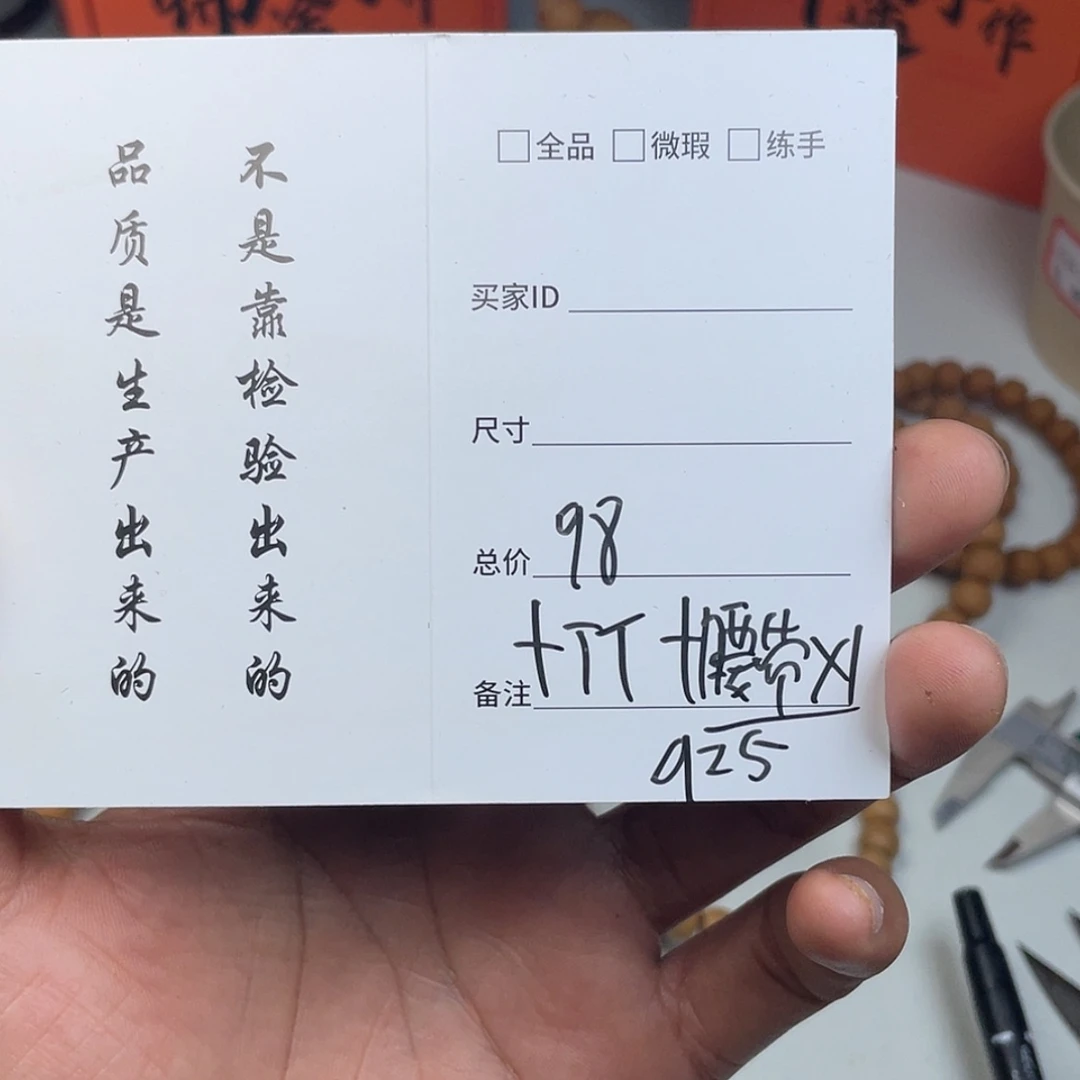 品质是生产出来的
不是靠检验出来的
□全品 □微瑕 □练手
买家ID
尺寸
总价 98
备注 十个 +腰带X1
925
手作